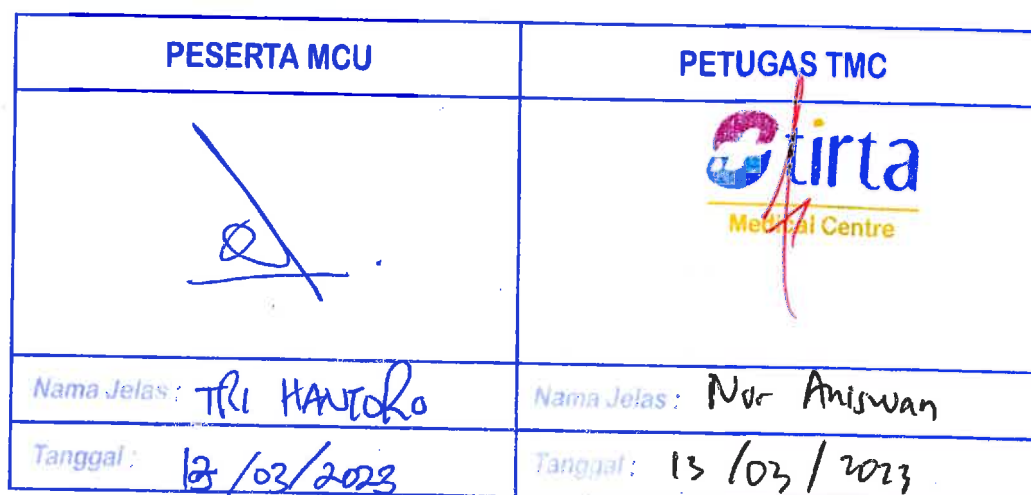 PESERTA MCU
PETUGAS TMC
tirta
Medical Centre
Nama Jelas : TRI HANTORO
Nama Jelas : Nur Aniswan
Tanggal : 13/03/2023
Tanggal : 13/03/2023